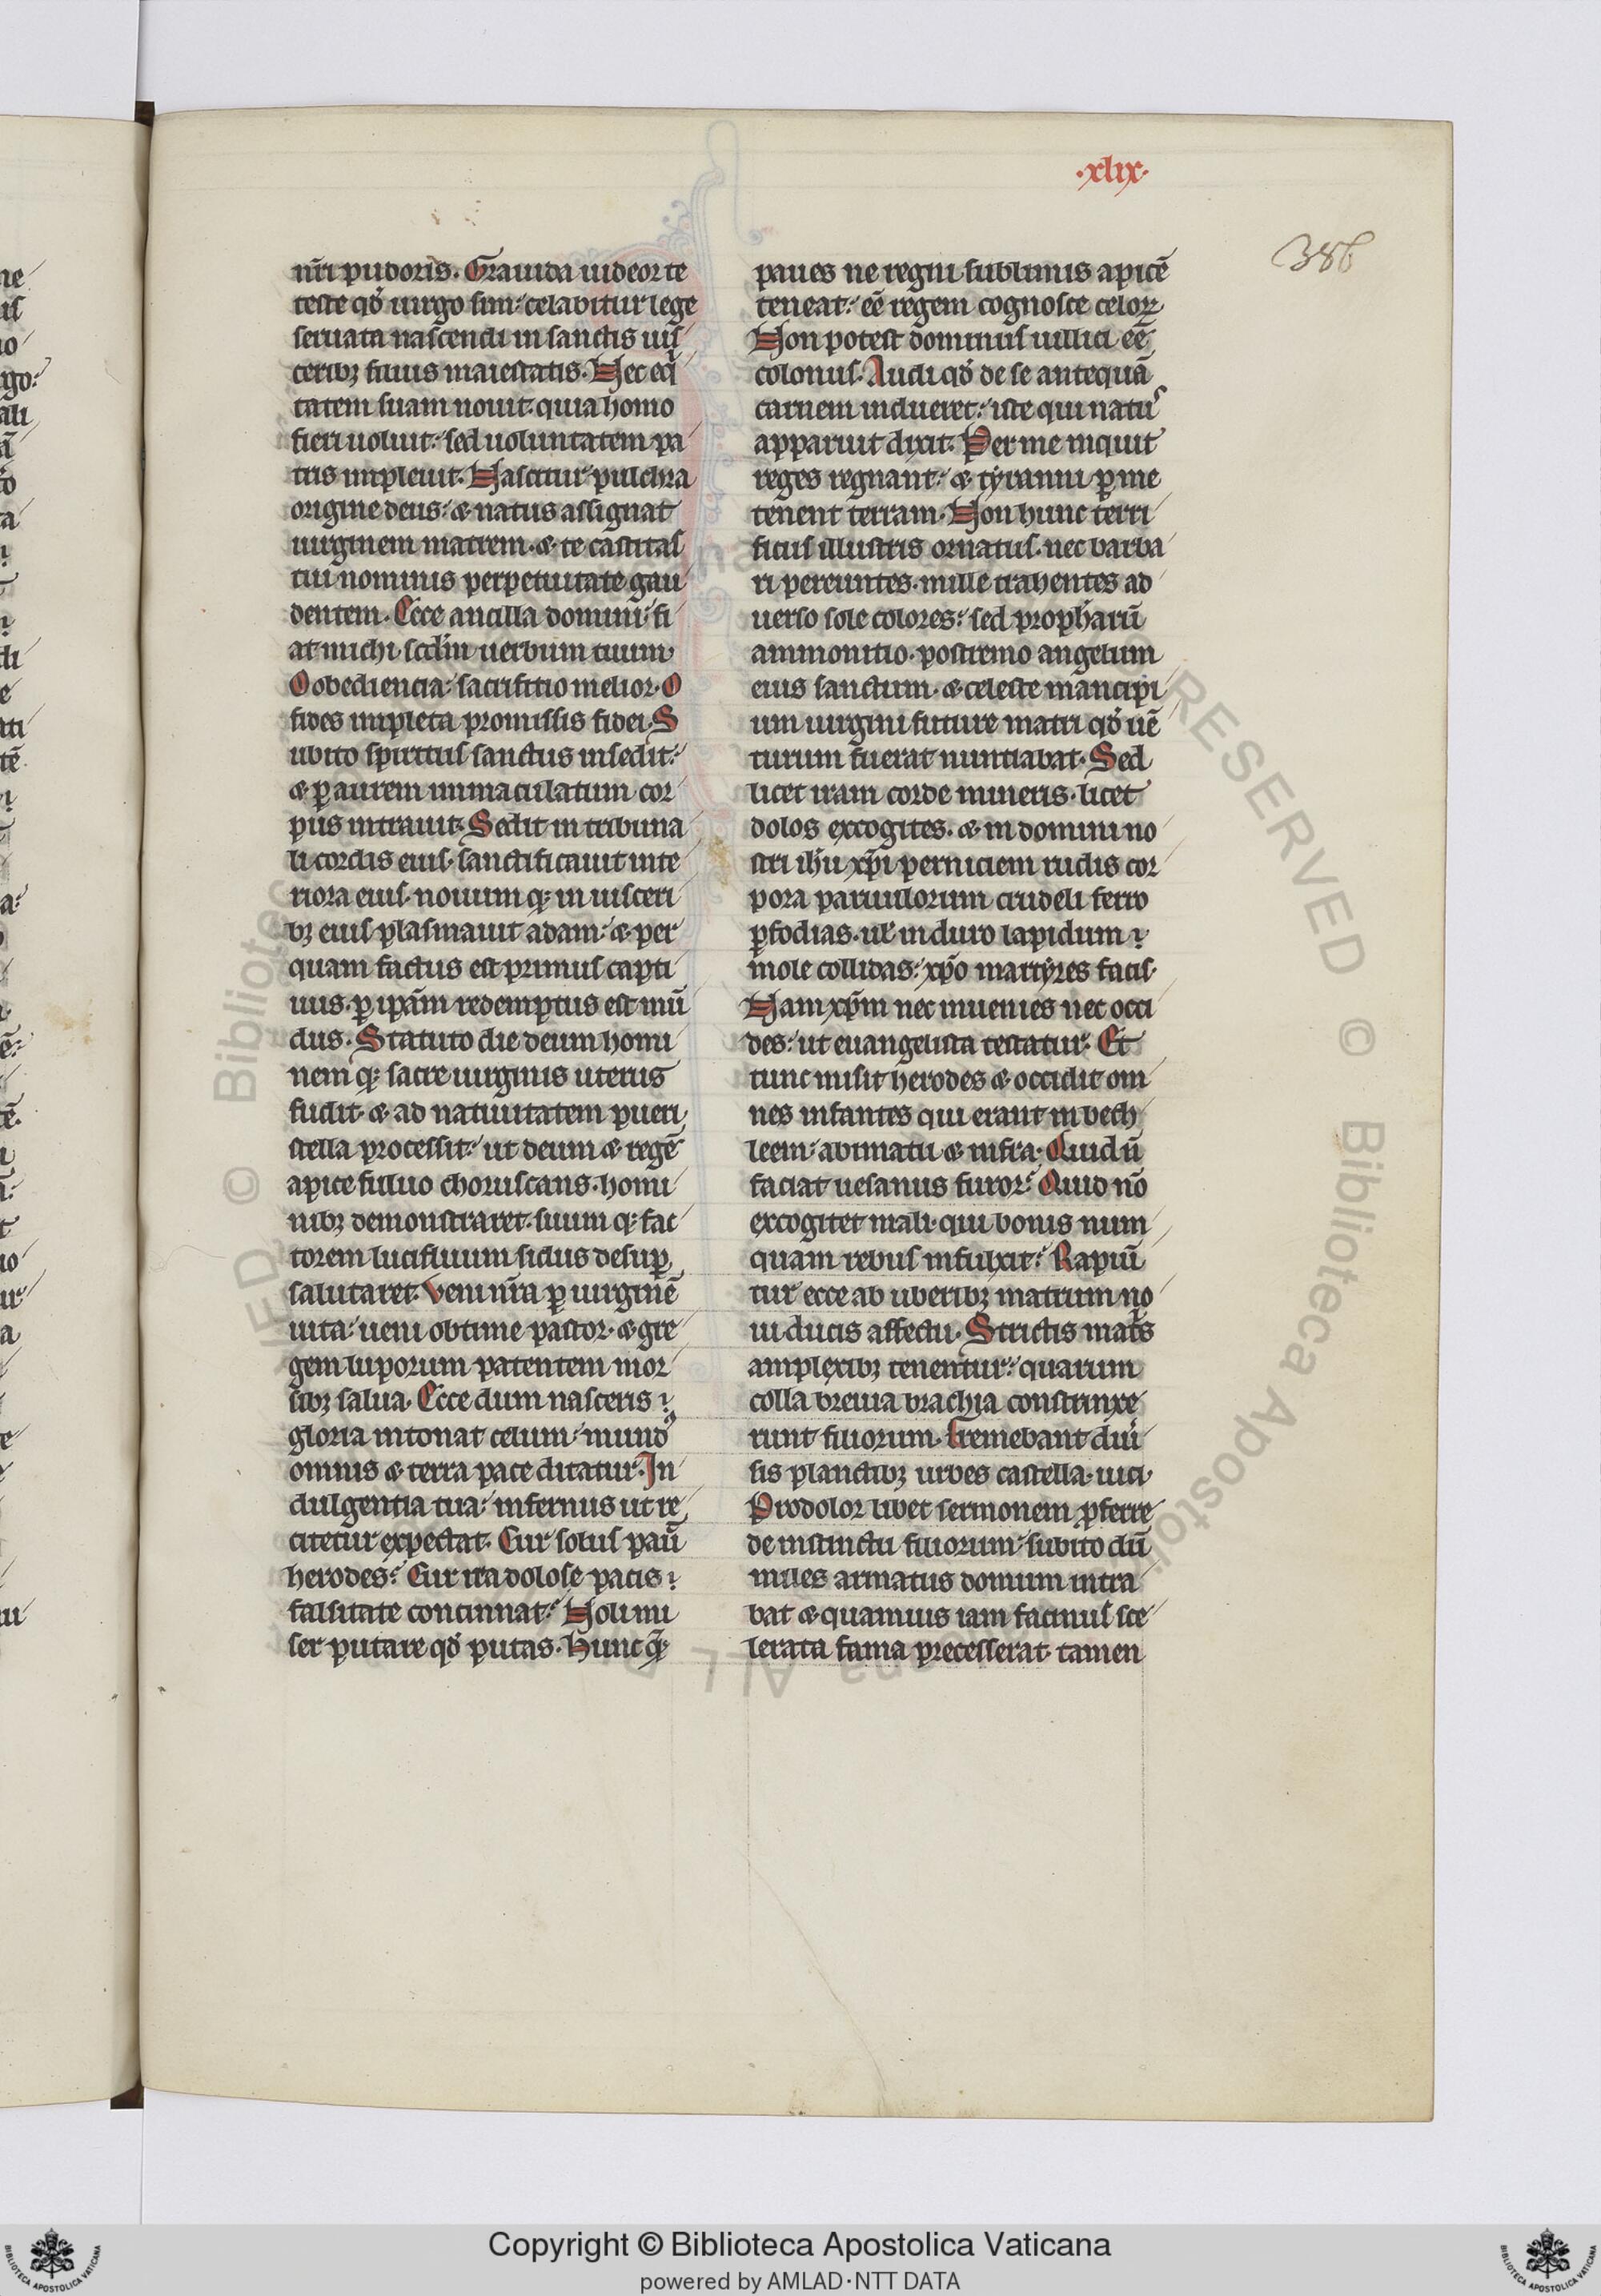 ·xlix·
386
nr̄i pudoris. Grauida uideor te
teste qđ uirgo sim: celabitur lege
seruata nascendi in sanctis uis
ceribꝫ filius maiestatis. Nec eq̄
tatem suam nouit. quia homo
fieri uoluit: sed uoluntatem pa
tris impleuit. Nascitur pulchra
origine deus: & natus assignat
uirginem matrem. & te castitas
tui nominis perpetuitate gau
dentem. Ecce ancilla domini: fi
at michi scd̄m uerbum tuum
O obediencia: sacrifitio melior. O
fides impleta promissis fidei. S
ubito spiritus sanctus insedit:
& ꝑ aurem immaculatum cor
pus intrauit. Sedit in tribuna
li cordis eius. sanctificauit inte
riora eius. nouum qꝫ in uisceri
bꝫ eius plasmauit adam: & per
quam factus est primus capti
uus. ꝑ ipsam redemptus est mū
dus. Statuto die deum homi
nem qꝫ sacre uirginis uterus
fudit. & ad natiuitatem pueri
stella processit: ut deum & regē
apice fuluo choruscans. homi
nibꝫ demonstraret. suum qꝫ fac
torem lucifluum sidus desuꝑ
salutaret. Veni nr̄a ꝑ uirginē
uita: ueni obtime pastor. & gre
gem luporum patentem mor
sibꝫ salua. Ecce dum nasceris
gloria intonat celum: mundꝰ
omnis & terra pace ditatur. In
dulgentia tua: infernus ut re
citetur expectat. Cur solus pau
herodes? Cur ita dolose pacis
falsitate concinnat? Noli mi
ser putare qđ putas. Hunc qꝫ
paues ne regni sublimis apicē
teneat: eē regem cognosce celoꝝ
Non potest dominus uillici eē
colonus. Audi qđ de se antequā
carnem indueret: iste qui natus
apparuit dixit. Per me inquit
reges regnant: & tyranni ꝑ me
tenent terram. Non hunc terri
ficus illustris ornatus. nec barba
ri pereuntes. mille trahentes ad
uerso sole colores: sed prophetarū
ammonitio. postremo angelum
eius sanctum. & celeste mancipi
um uirgini future matri qđ uē
turum fuerat nuntiabat. Sed
licet iram corde mineris. licet
dolos excogites. & in domini no
stri ih̄u xp̄i perniciem rudis cor
pora paruulorum crudeli ferro
ꝑfodias. ul̄ in duro lapidum
mole collidas: xp̄o martyres facis.
Nam xp̄m nec inuenies nec occi
des: ut euangelista testatur. Et
tunc misit herodes & occidit om
nes infantes qui erant in beth
leem: a bimatu & infra. Quid ū
faciat uesanus furor? Quid nō
excogitet mali. qui bonis num
quam rebus infulxit? Rapiū
tur ecce ab uberibꝫ matrum no
ui ducis affectu. Strictis mat̄s
amplexibꝫ tenentur: quarum
colla breuia brachia constrinxe
runt filiorum. Fremebant diui
sis planctibꝫ urbes castella. uici
Prodolor libet sermonem ꝓferre
de instinctu filiorum: subito dū
miles armatus domum intra
bat & quamuis iam facinus sce
lerata fama precesserat. tamen
© Biblioteca Apostolica Vaticana ALL RIGHTS RESERVED
Copyright © Biblioteca Apostolica Vaticana
powered by AMLAD·NTT DATA
BIBLIOTECA APOSTOLICA VATICANA
BIBLIOTECA APOSTOLICA VATICANA